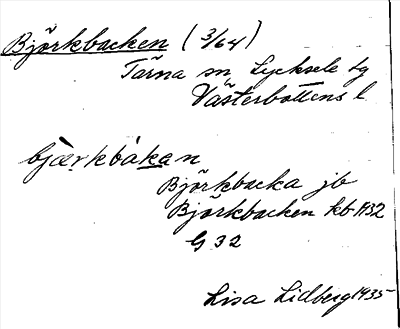 Björkbacken (3/64)
Tärna sn Lycksele tg
Västerbottens l
bjærkbákan
Björkbacka jb
Björkbacken kb 1932
G 32
Lisa Lidberg 1935